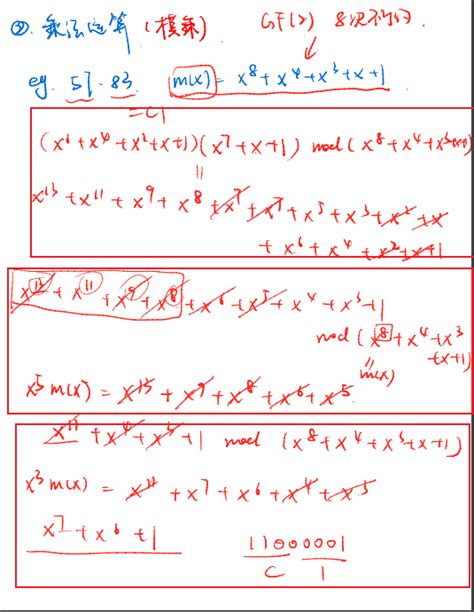 ②. 乘法运算 (模乘) GF(2) 8次不可约
eg. 57 · 83 m(x) = x⁸ + x⁴ + x³ + x + 1
= C1
(x⁶ + x⁴ + x² + x + 1)(x⁷ + x + 1) mod (x⁸ + x⁴ + x³ + x + 1)
=
x¹³ + x¹¹ + x⁹ + x⁸ + x⁷ + x⁷ + x⁵ + x³ + x² + x
+ x⁶ + x⁴ + x² + x + 1
x¹³ + x¹¹ + x⁹ + x⁸ + x⁶ + x⁵ + x⁴ + x³ + 1
mod (x⁸ + x⁴ + x³
+ x + 1)
= m(x)
x⁵ m(x) = x¹³ + x⁹ + x⁸ + x⁶ + x⁵
x¹¹ + x⁴ + x³ + 1 mod (x⁸ + x⁴ + x³ + x + 1)
x³ m(x) = x¹¹ + x⁷ + x⁶ + x⁴ + x³
x⁷ + x⁶ + 1 11000001
C 1